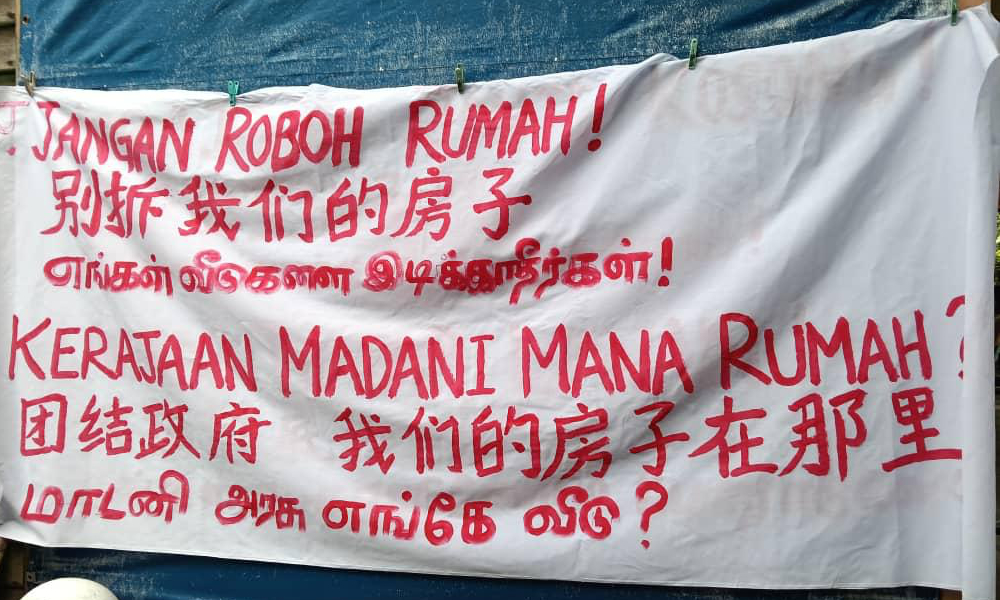 JANGAN ROBOH RUMAH!
别拆我们的房子
எங்கள் வீடுகளை இடிக்காதீர்கள்!
KERAJAAN MADANI MANA RUMAH?
团结政府 我们的房子在那里
மாடனி அரசு எங்கே வீடு?